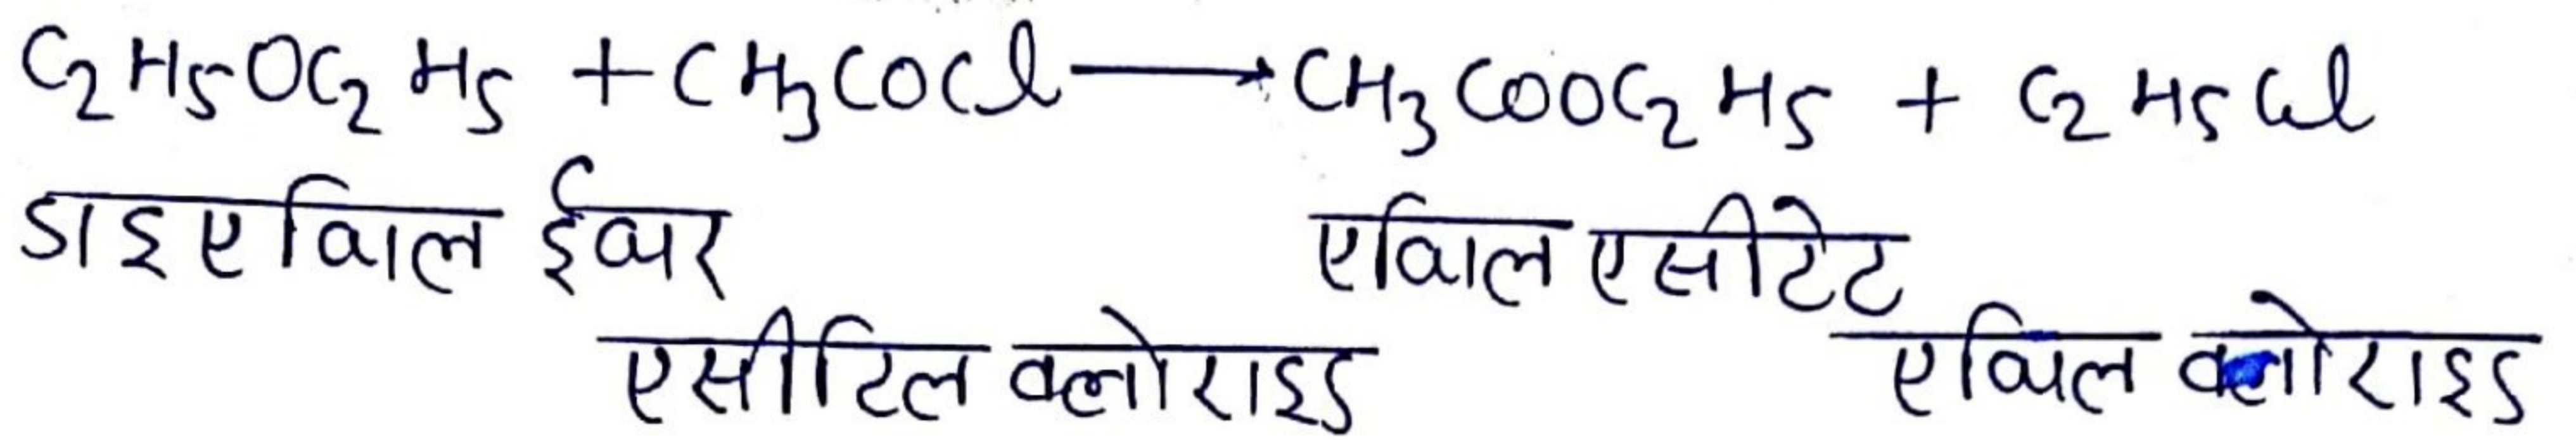 C₂H₅OC₂H₅ + CH₃COCl → CH₃COOC₂H₅ + C₂H₅Cl
डाइएथिल ईथर एथिल एसीटेट
एसीटिल क्लोराइड एथिल क्लोराइड